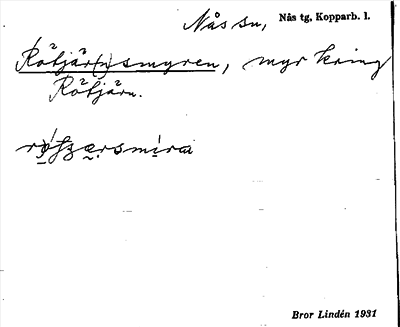 Nås sn, Nås tg, Kopparb. l.
Rötjär(n)smyren, myr kring
Rötjärn.
Bror Lindén 1931